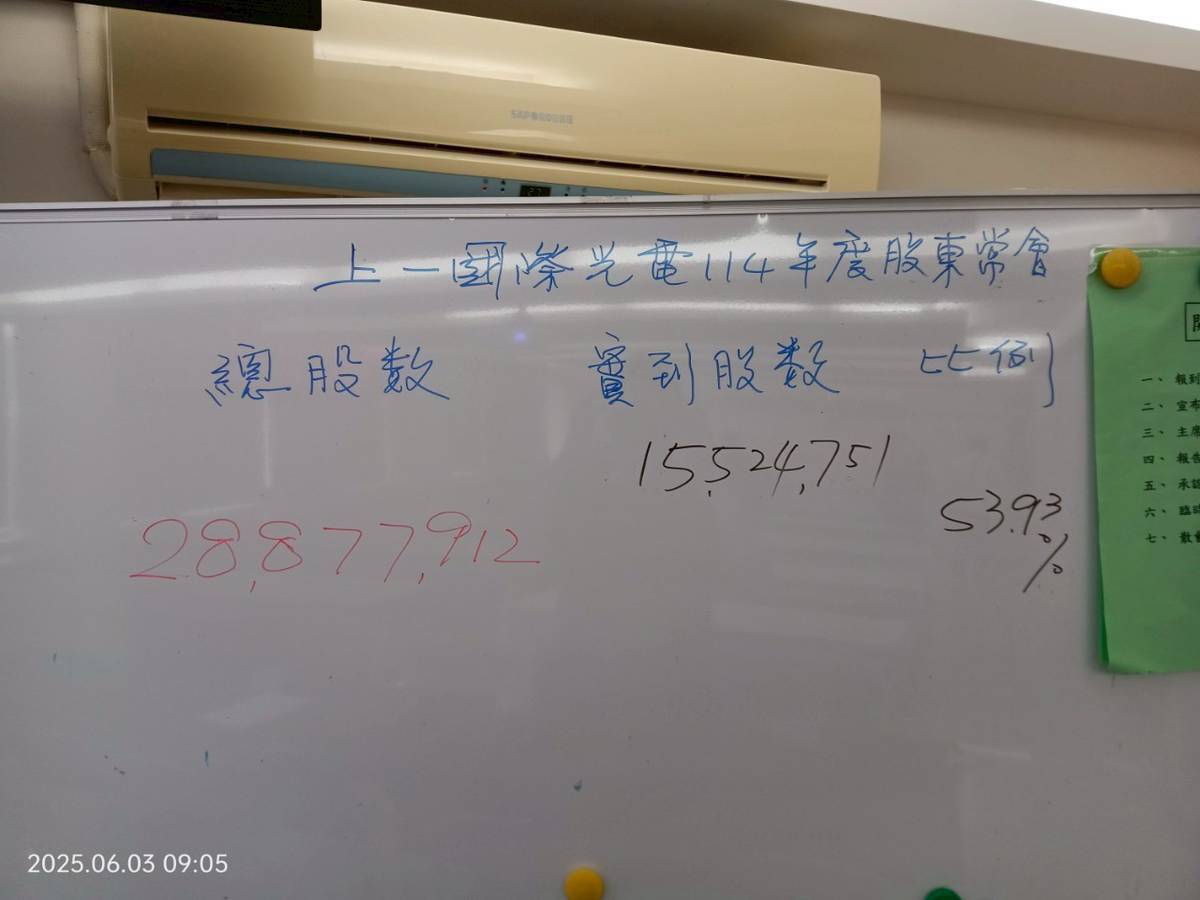 上一國際光電114年度股東常會
總股数 實到股数 比例
15,524,751
28,877,912
53.93%
一、報到
二、宣布
三、主席
四、報告
五、承認
六、臨時
七、散會
2025.06.03 09:05